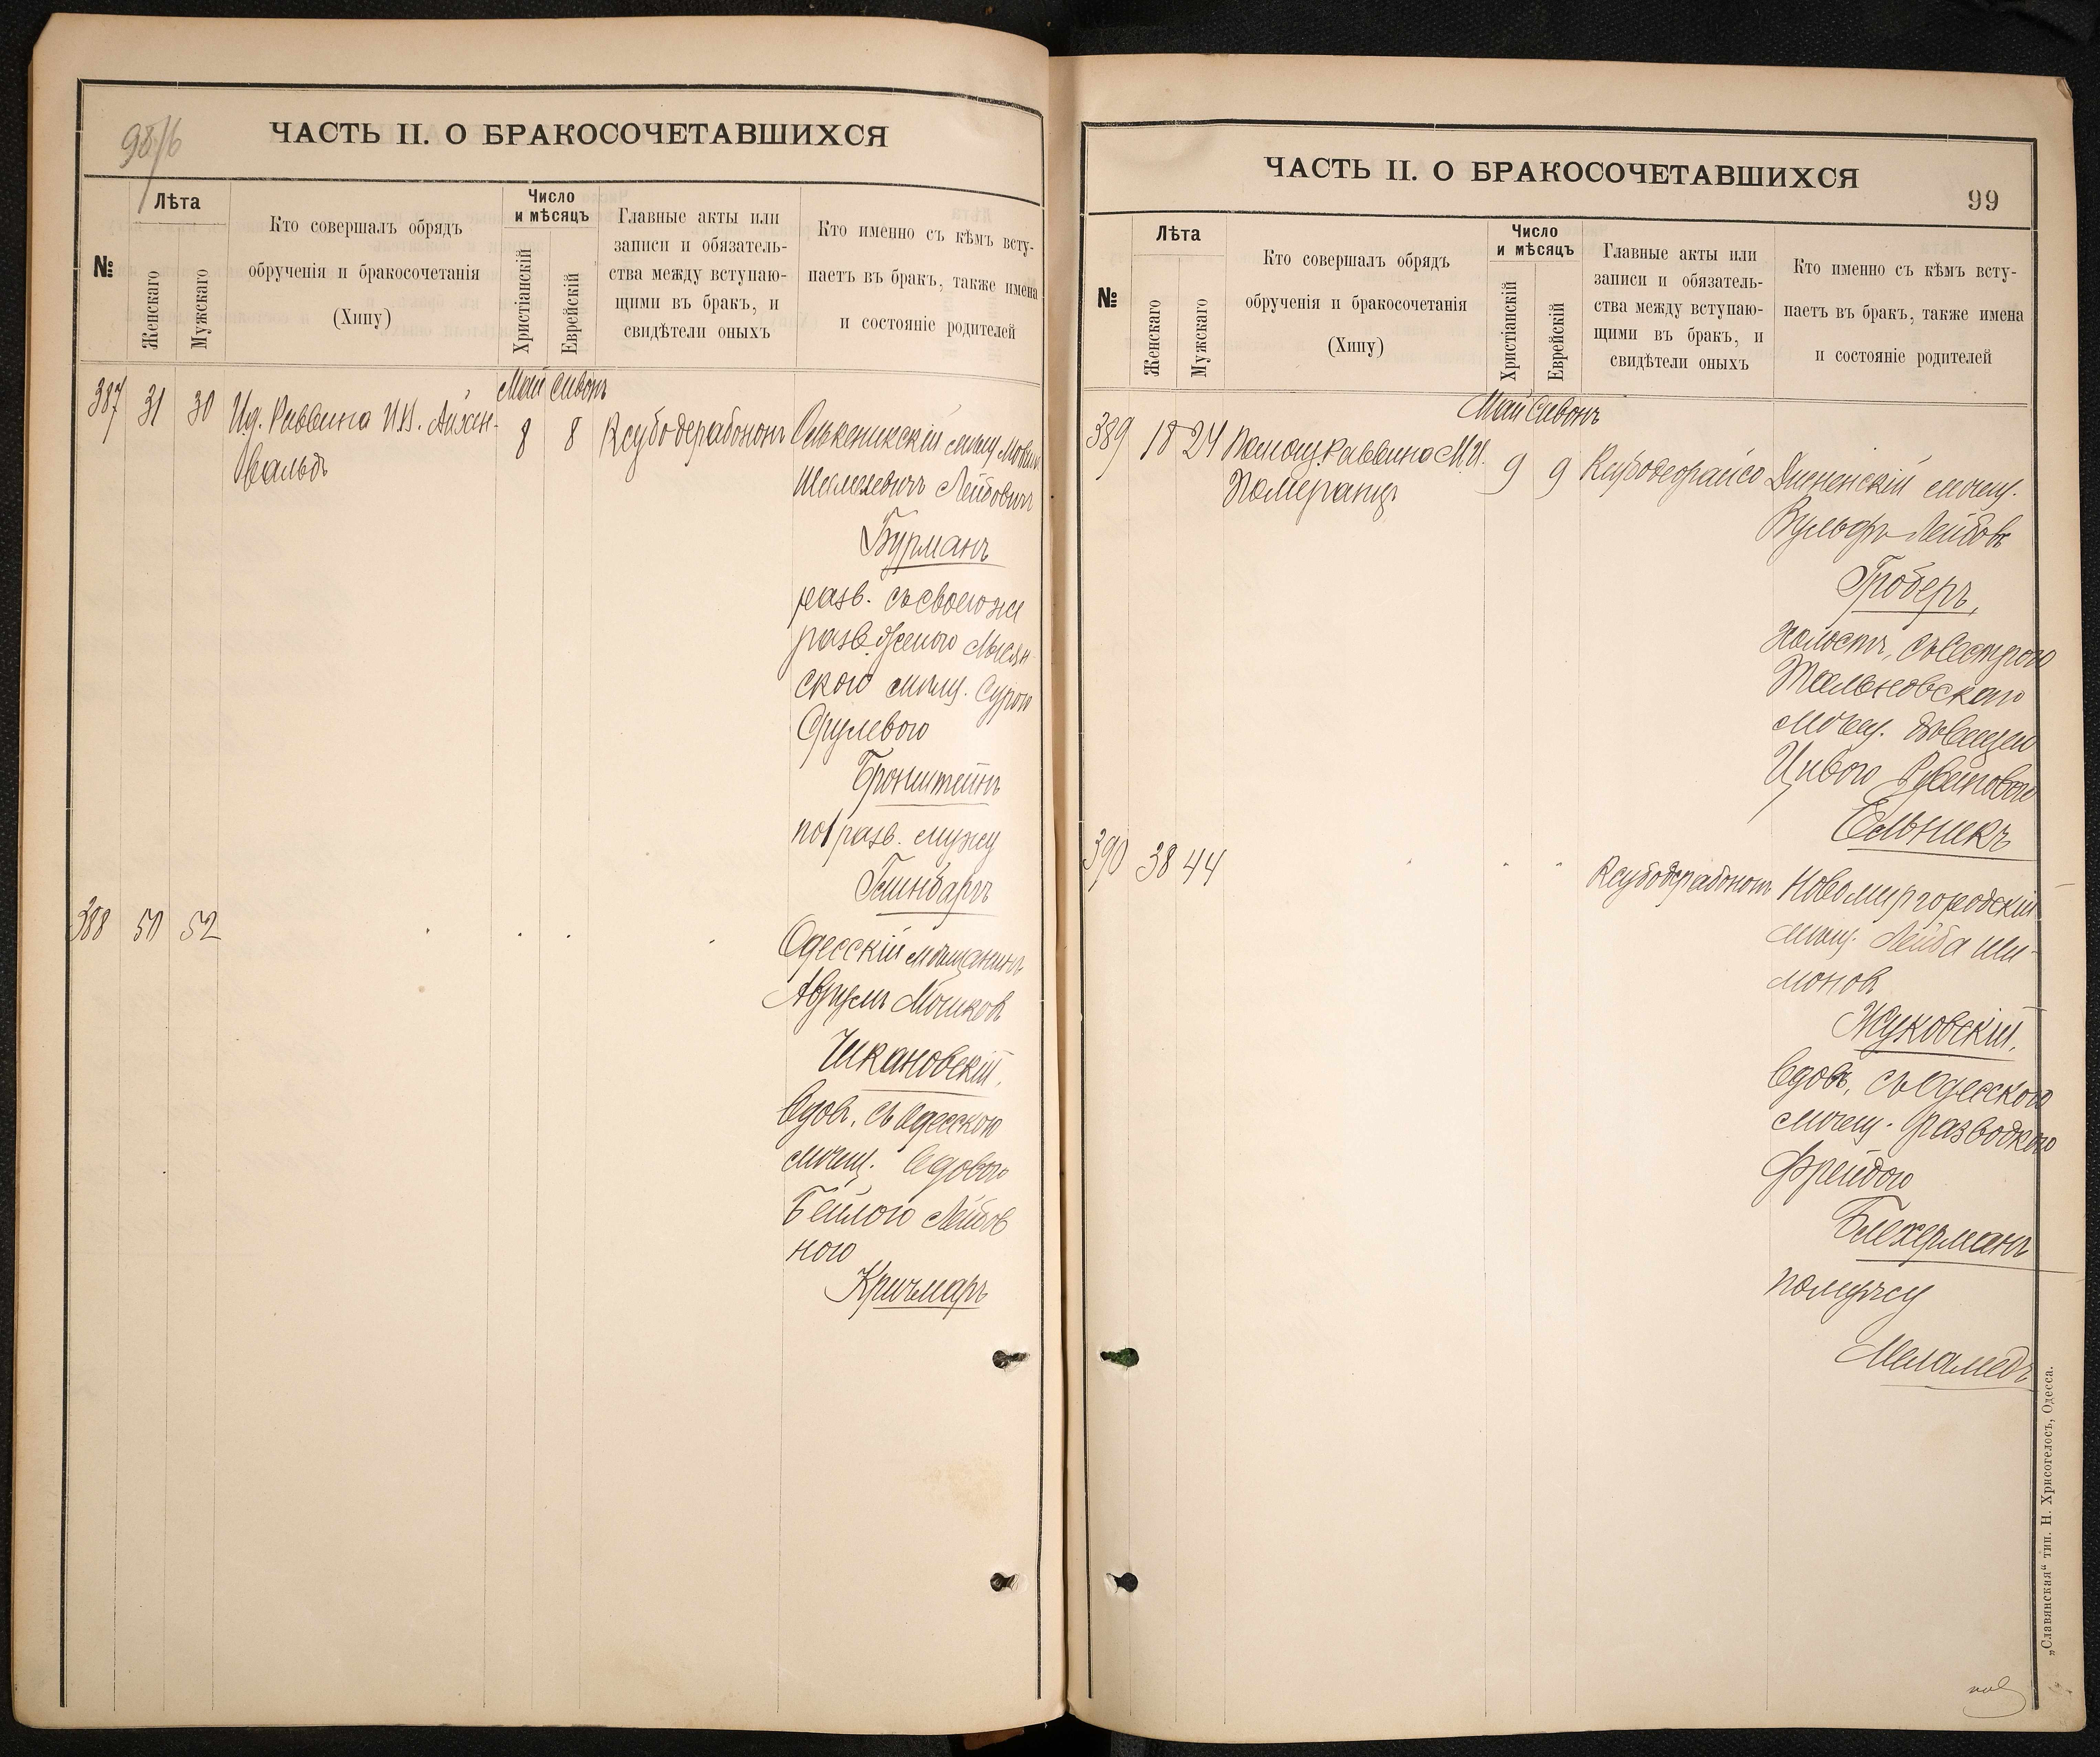 98/б
ЧАСТЬ II. О БРАКОСОЧЕТАВШИХСЯ
№
Лѣта
Женскаго
Мужскаго
Кто совершалъ обрядъ
обрученія и бракосочетанія
(Хипу)
Число
и мѣсяцъ
Христіанскій
Еврейскій
Главные акты или
записи и обязатель-
ства между вступаю-
щими въ бракъ, и
свидѣтели оныхъ
Кто именно съ кѣмъ всту-
паетъ въ бракъ, также имена
и состояніе родителей
Май Сивонъ
387 31 30 Ид. Раввина Айхен-
вальдъ
8 8 Ксубодерабононъ
Шмулевичъ Лейбовичъ
Бурманъ
разв. съ своею же
разв. женою
скою мѣщ. Сурою
Срулевою
Бронштейнъ
по 1 разв. мужу
Гринбаргъ
388 50 52
Одесскій мѣщанинъ
Аврумъ Мошковъ
Чикановскій.
вдов. съ Одесскою
мѣщ. вдовою
Бейлою Лейбов
ною
Кричмаръ
ЧАСТЬ II. О БРАКОСОЧЕТАВШИХСЯ
99
№
Лѣта
Женскаго
Мужскаго
Кто совершалъ обрядъ
обрученія и бракосочетанія
(Хипу)
Число
и мѣсяцъ
Христіанскій
Еврейскій
Главные акты или
записи и обязатель-
ства между вступаю-
щими въ бракъ, и
свидѣтели оныхъ
Кто именно съ кѣмъ всту-
паетъ въ бракъ, также имена
и состояніе родителей
Май Сивонъ
389 18 24 Помощ. Раввина М. И.
Померанцъ
9 9 Ксубодеорайсо
Дисненскій мѣщ.
Вульфъ Лейбовъ
Гроберъ,
холостъ, съ сестрою
Тальновскаго
мѣщ. дѣвицею
Цивою
Ельникъ
390 38 44
Ксубодерабононъ
Новомиргородскій
мѣщ. Лейба Ши-
моновъ
Жуковскій,
вдовъ, съ Одесскою
мѣщ. разводкою
Фрейдою
Блехерманъ
по мужу
Меламедъ
„Славянская“ тип. Н. Хрисогелосъ, Одесса.